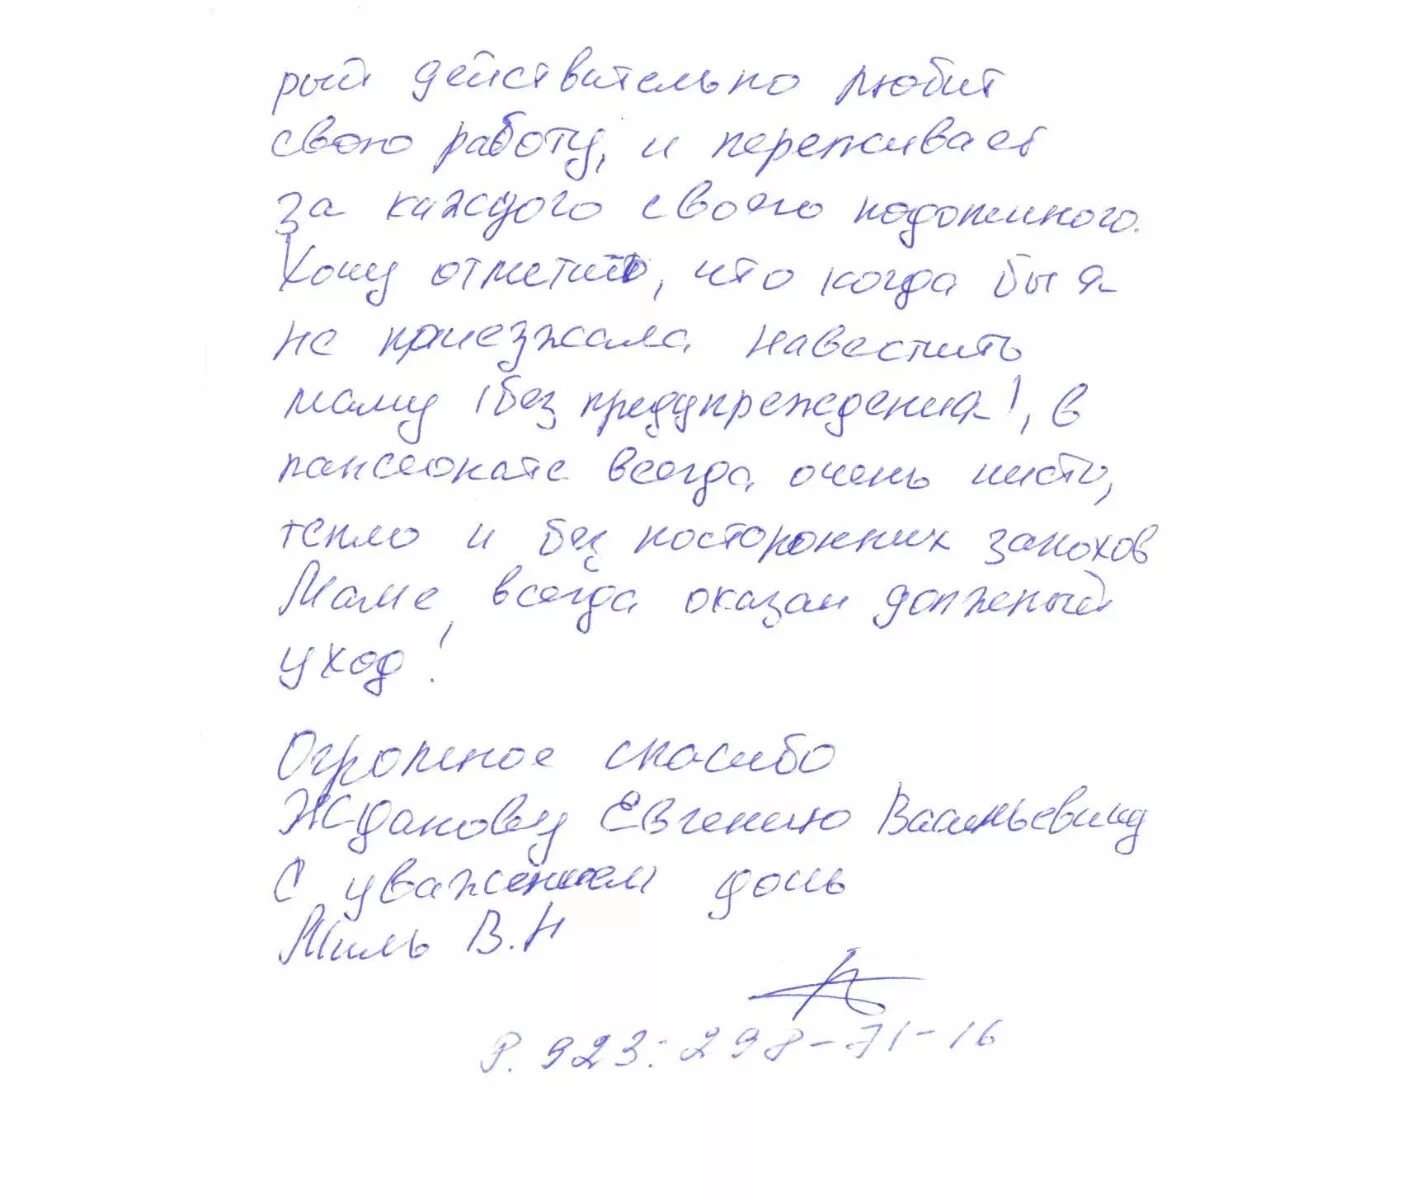 рый действительно любит
свою работу, и переживает
за каждого своего подопечного.
Хочу отметить, что когда бы я
не приезжала навестить
маму (без предупреждения), в
пансионате всегда очень чисто,
тепло и без посторонних запахов
Маме всегда оказан должный
уход!
Огромное спасибо
Жданову Евгению Васильевичу
С уважением дочь
Миль В.Н
P. 923:298-71-16